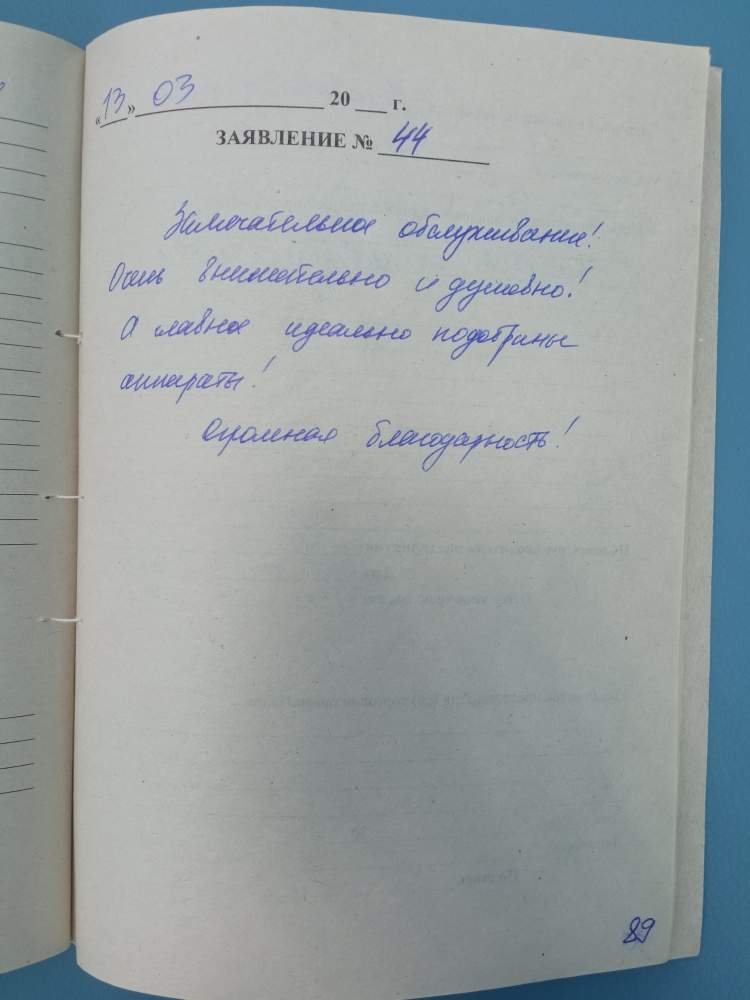 «13» 03 20 г.
ЗАЯВЛЕНИЕ № 44
Замечательное обслуживание!
Очень внимательно и душевно!
А главное идеально подобраны
аппараты!
Огромная благодарность!
89